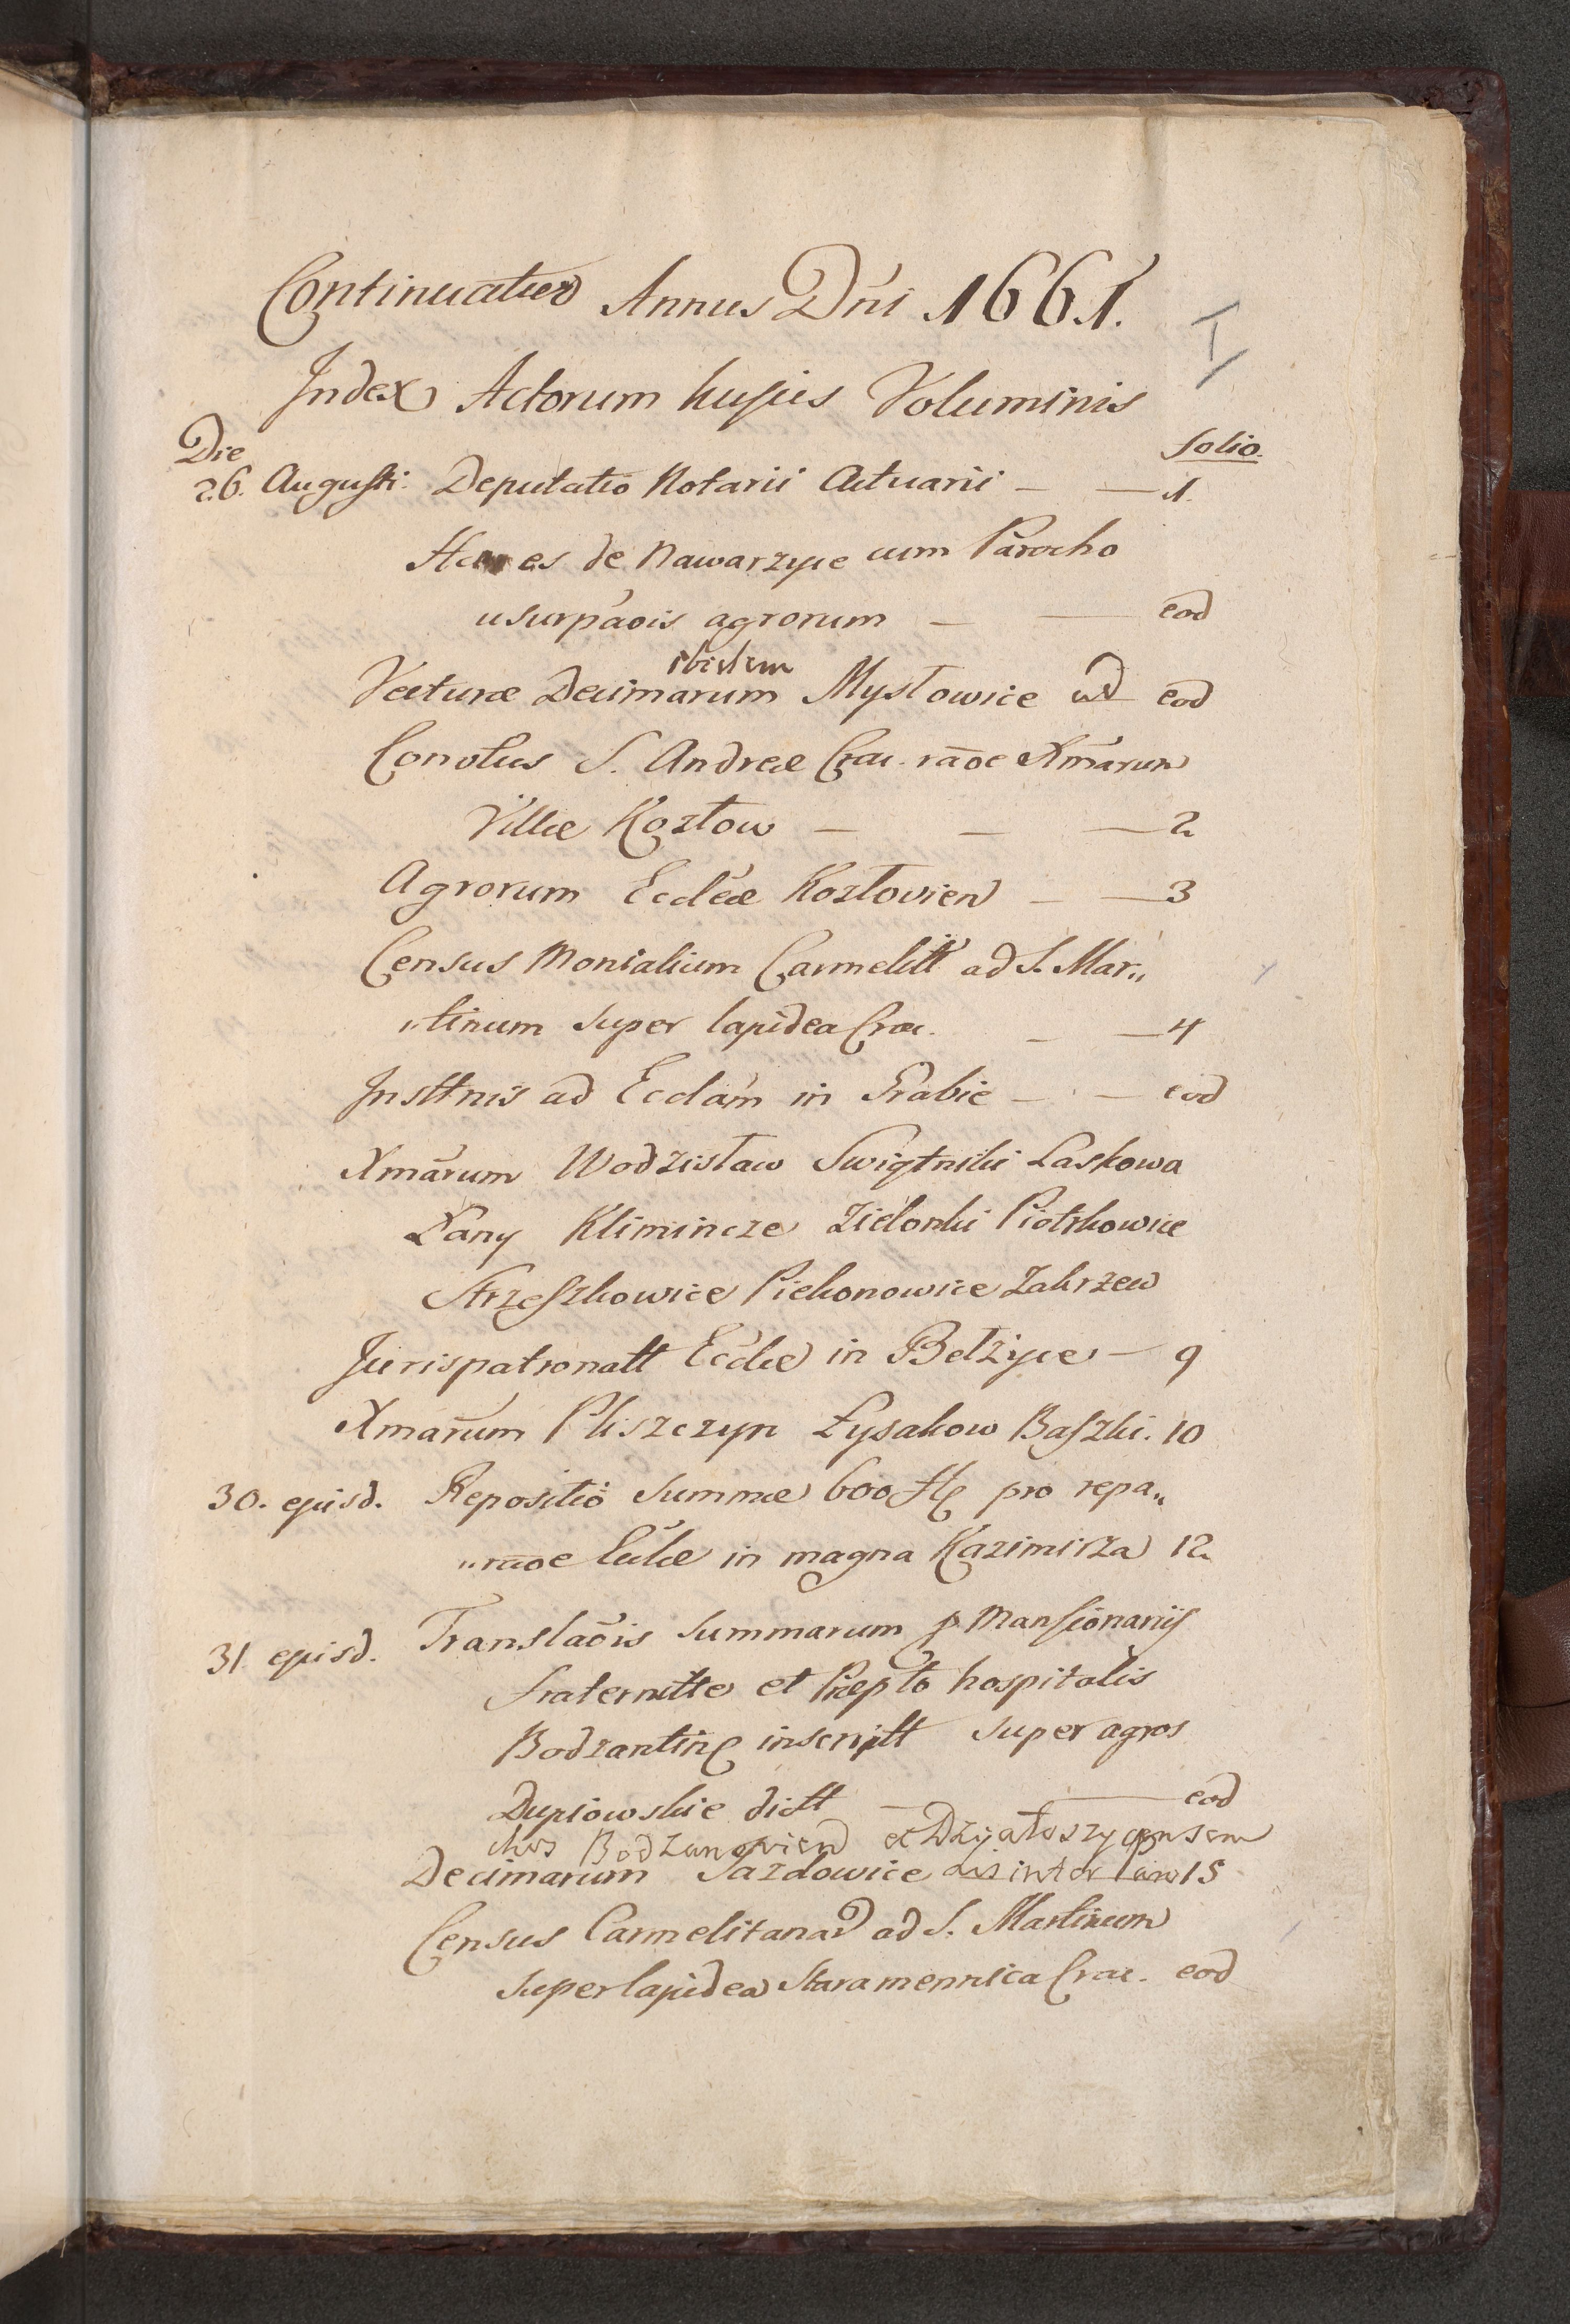 Continuatur Annus Dn̄i 1661.
I
Index Actorum hujus Voluminis
Die folio.
26. Augusti. Deputatio Notarii Actuarii — — 1.
Haeres de Nawarzyce cum Parocho
usurpāois agrorum — — eod
ibidem
Vecturæ Decimarum Mysłowice ad eod
Convētus S. Andreæ Crac. rāoe Xmārum
Villæ Kozłow — — — 2
Agrorum Eccleæ Kozłovien — — 3
Census Monialium Carmelitt ad S. Mar„
„tinum super lapidea Crac. — — 4
Insttnis ad Ecclām in Grabie — — eod
Xmārum Wodzisław Swiątniki Laskowa
Łany Klimincze Zielonki Piotrkowice
Strzeszkowice Piekonowice Zakrzew
Jurispatronatt Ecclæ in Bełżyce — 9
Xmārum Pliszczyn Łysakow Baszki. 10
30. ejusd. Repositio summæ 600 fl pro repa„
„rāoe Ecclæ in magna Kazimirza 12
31. ejusd. Translāois summarum p Mansionarijs
fraternitte et Præpto hospitalis
Bodzantin inscriptt super agros
Dupiowskie dictt — — eod
chos Bodzanovien et Działoszycensem
Decimarum Sazdowice lis inter Paro 15
Census Carmelitanar ad S. Martinum
super lapidea Staramennica Crac. eod